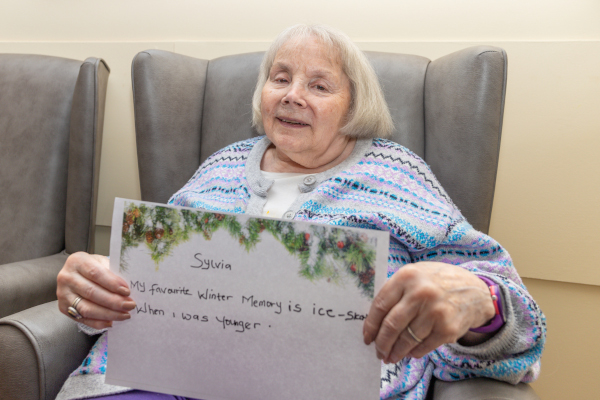 Sylvia
My favourite Winter Memory is
When i was younger.